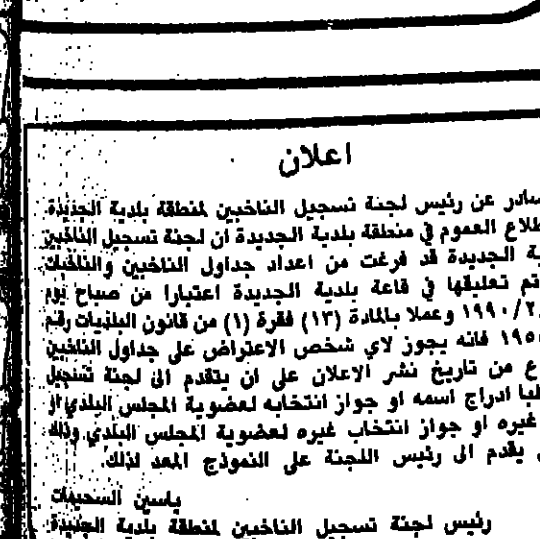 اعلان
صادر عن رئيس لجنة تسجيل الناخبين لمنطقة بلدية الجديدة.
طلاع العموم في منطقة بلدية الجديدة ان لجنة تسجيل الناخبين
ية الجديدة قد فرغت من اعداد جداول الناخبين والناخبات
تم تعليقها في قاعة بلدية الجديدة اعتبارا من صباح يوم
١٩٩٠/٢ وعملا بالمادة (١٣) فقرة (١) من قانون البلديات رقم
١٩٥ فانه يجوز لاي شخص الاعتراض على جداول الناخبين
ع من تاريخ نشر الاعلان على ان يتقدم الى لجنة تسجيل
طبا ادراج اسمه او جواز انتخابه لعضوية المجلس البلدي او
غيره او جواز انتخاب غيره لعضوية المجلس البلدي وذلك
يقدم الى رئيس اللجنة على النموذج المعد لذلك.
ياسين السحيمات
رئيس لجنة تسجيل الناخبين لمنطقة بلدية الجديدة